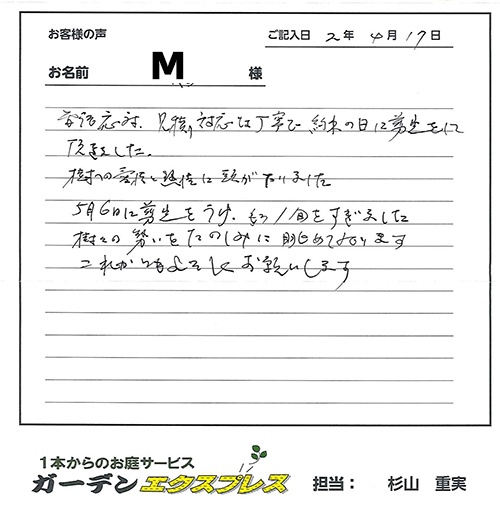 お客様の声
ご記入日 2年 4月17日
お名前 M 様
電話応対、見積り対応は丁寧で約束の日に剪定をして
頂きました。
樹々への愛情と熱情に頭が下りました
5月6日に剪定をうけ、もう1旬をすぎました
樹々の勢いをたのしみに眺めております
これからもよろしくお願いします
1本からのお庭サービス
ガーデンエクスプレス 担当： 杉山 重実